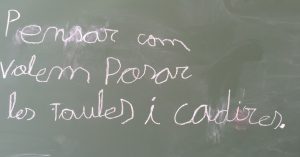 Pensar com
volem Posar
les Taules i cadires.